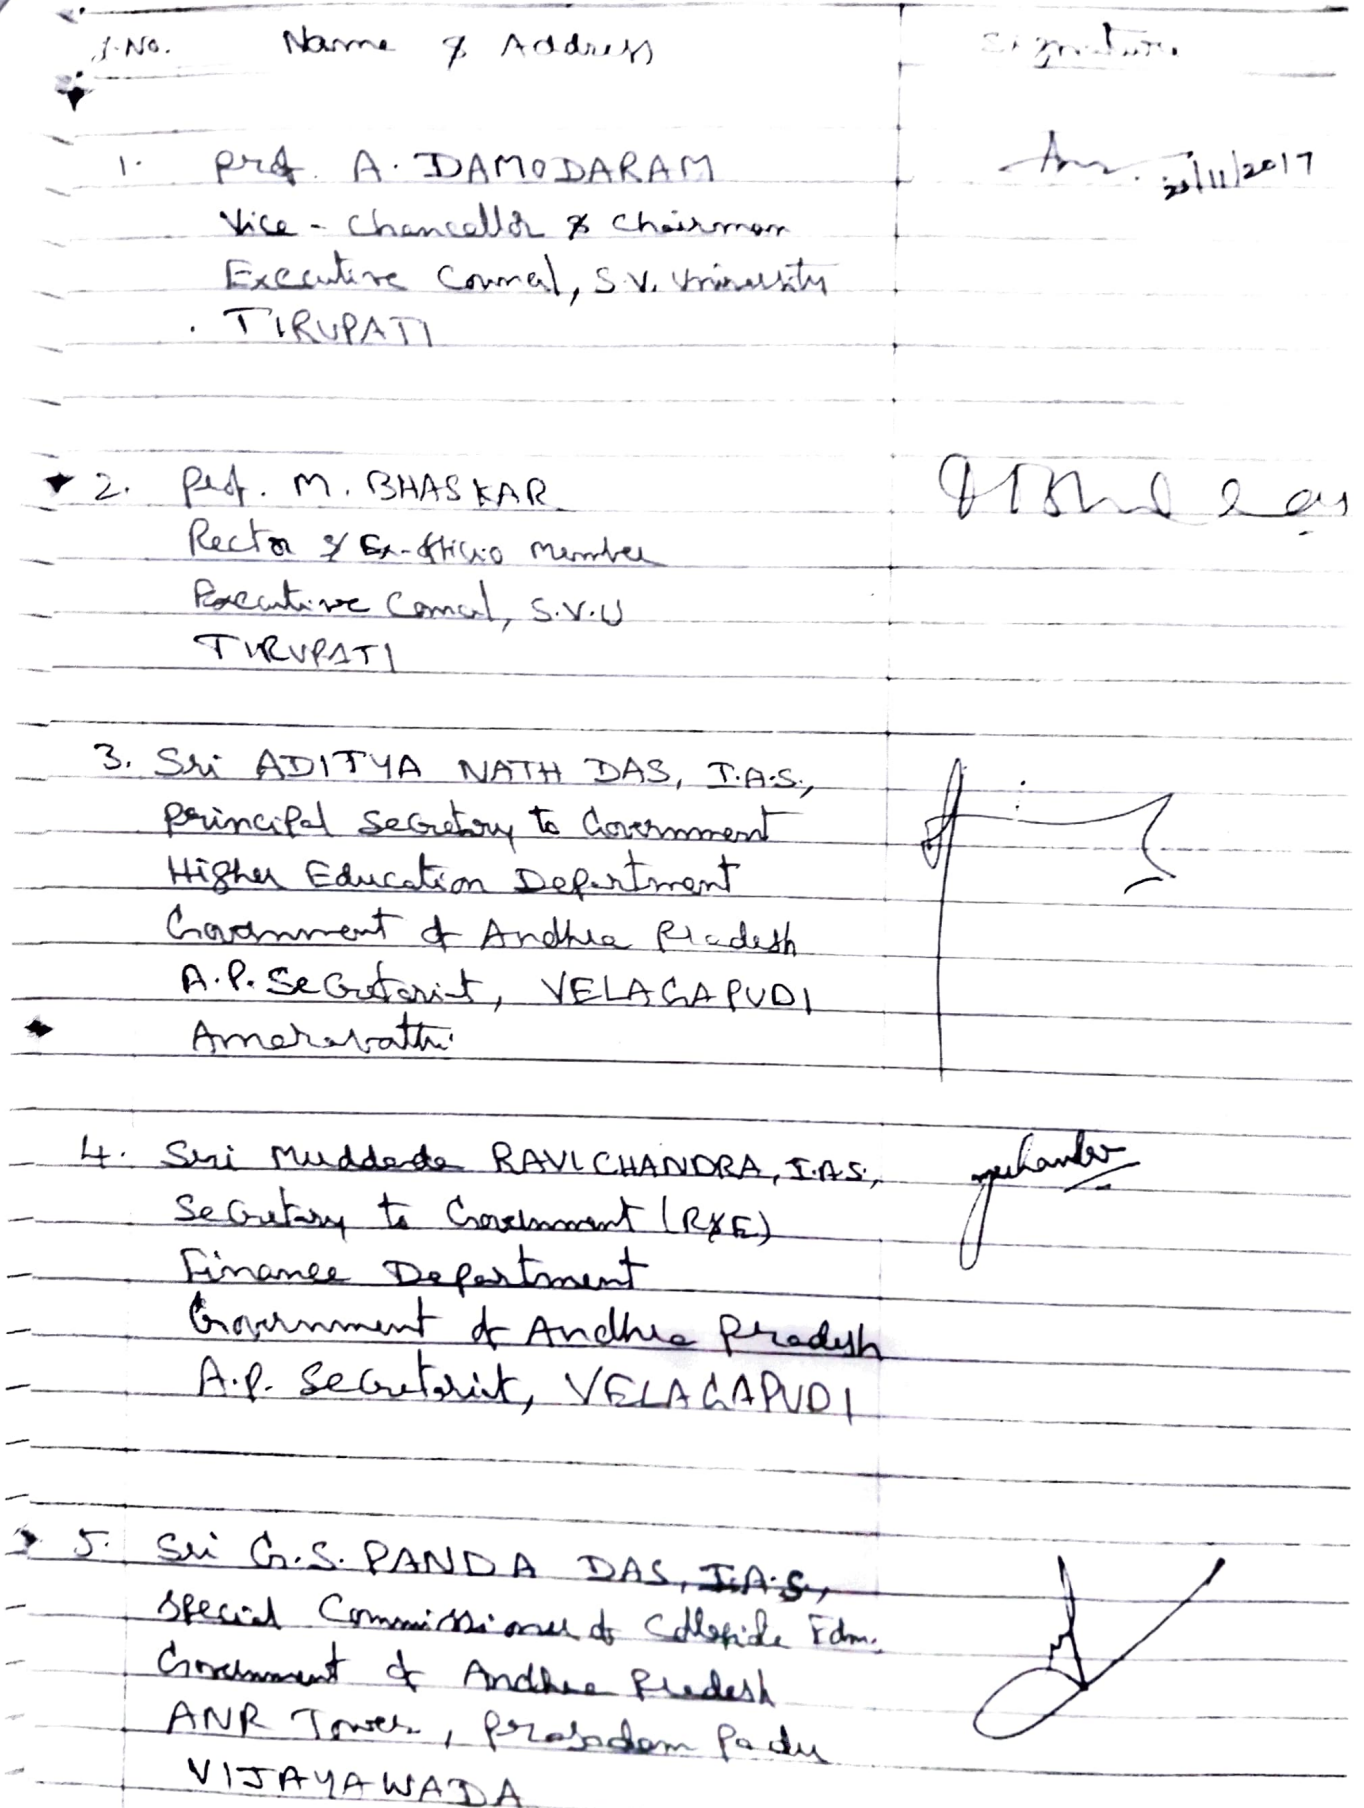 S.No. Name & Address Signature
1. Prof. A. DAMODARAM
Vice - Chancellor & Chairman
Executive Council, S.V. University
TIRUPATI
/11/2017
2. Prof. M. BHASKAR
Rector & Ex-officio Member
Executive Council, S.V.U
TIRUPATI
3. Sri ADITYA NATH DAS, I.A.S.,
Principal Secretary to Government
Higher Education Department
Government of Andhra Pradesh
A.P. Secretariat, VELAGAPUDI
Amaravathi
4. Sri Muddada RAVICHANDRA, I.A.S.,
Secretary to Government (R&E)
Finance Department
Government of Andhra Pradesh
A.P. Secretariat, VELAGAPUDI
5. Sri G.S. PANDA DAS, I.A.S.,
Special Commissioner of Collegiate Edn.
Government of Andhra Pradesh
ANR Tower, Prasadam Padu
VIJAYAWADA